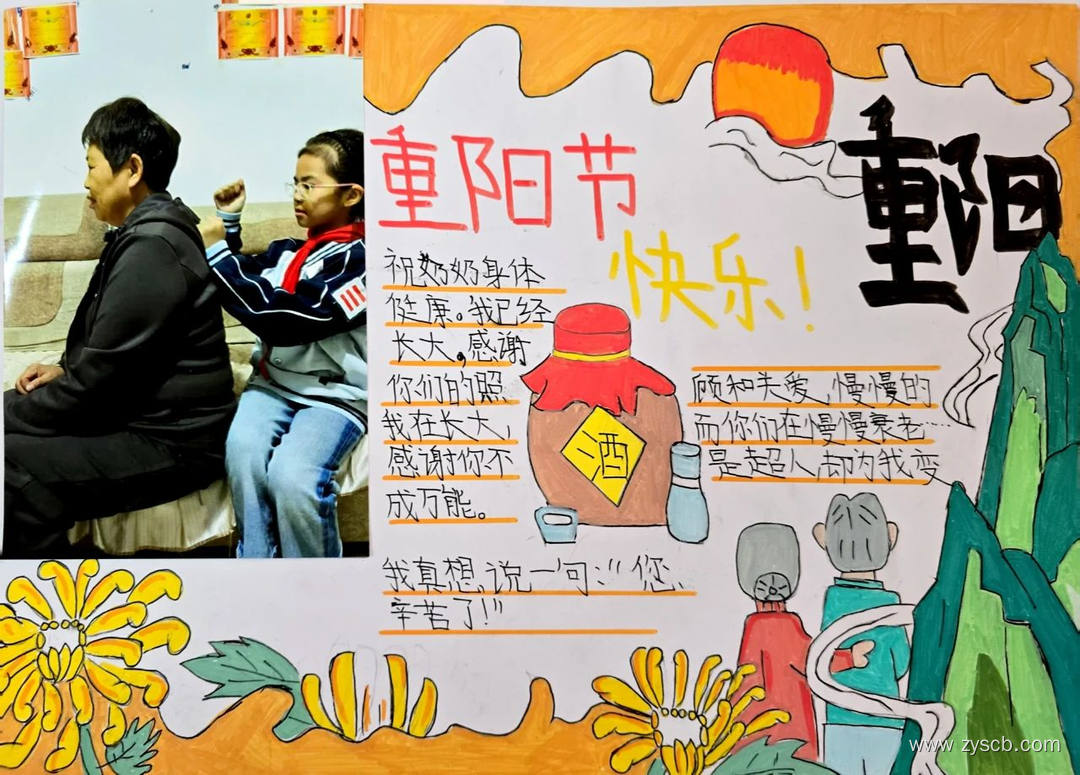 重阳节
快乐！
重阳
祝奶奶身体
健康。我已经
长大，感谢
你们的照
顾和关爱，慢慢的
我在长大，
而你们在慢慢衰老……
感谢你不
是超人，却为我变
成万能。
酒
我真想说一句："您
辛苦了！"
www.zyscb.com